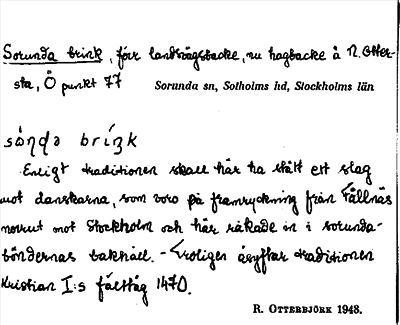 Sorunda brink, förr landsvägsbacke, nu hagbacke å N. Otter-
sta, Ö punkt 77
Sorunda sn, Sotholms hd, Stockholms län
Enligt traditionen skall här ha stått ett slag
mot danskarna, som voro på framryckning från Fållnäs
norrut mot Stockholm och här råkade in i sorunda-
böndernas bakhåll. - Troligen åsyftar traditionen
Kristian I:s fälttåg 1470.
R. OTTERBJÖRK 1948.